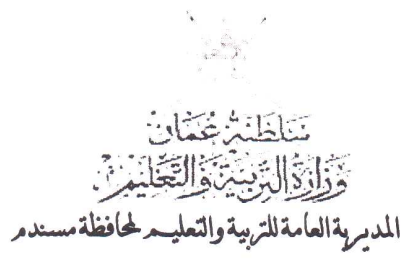 سلطنة عمان
وزارة التربية والتعليم
المديرية العامة للتربية والتعليم لمحافظة مسندم